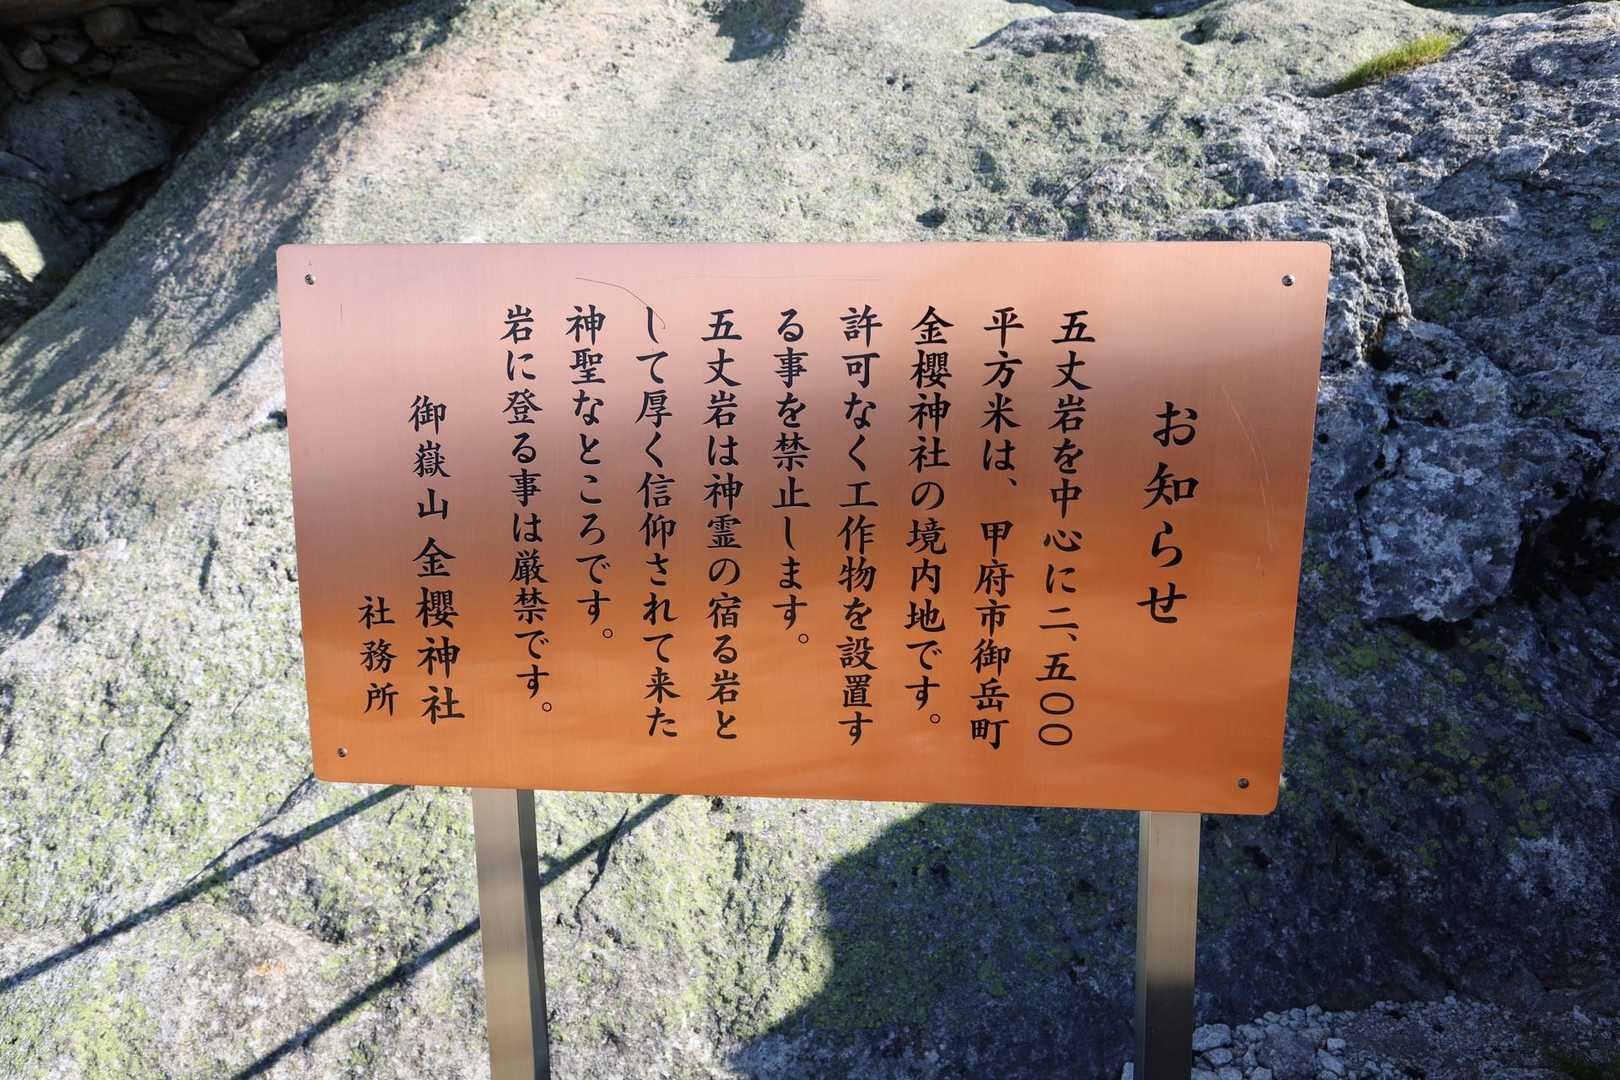 お知らせ
五丈岩を中心に二、五〇〇
平方米は、甲府市御岳町
金櫻神社の境内地です。
許可なく工作物を設置す
る事を禁止します。
五丈岩は神霊の宿る岩と
して厚く信仰されて来た
神聖なところです。
岩に登る事は厳禁です。
御嶽山金櫻神社
社務所